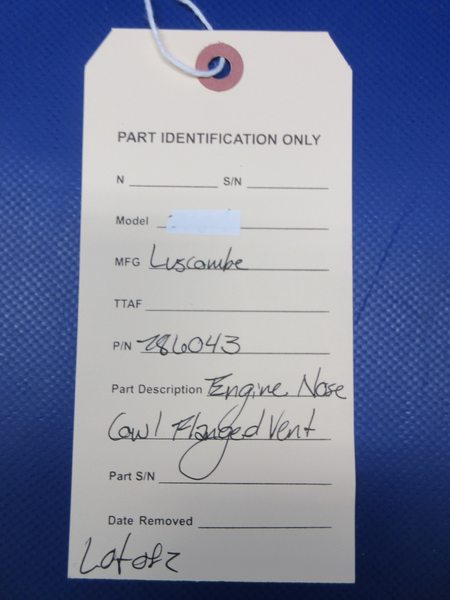 PART IDENTIFICATION ONLY
N S/N
Model
MFG Luscombe
TTAF
P/N 286043
Part Description Engine Nose
Cowl Flanged Vent
Part S/N
Date Removed
Lot of 2